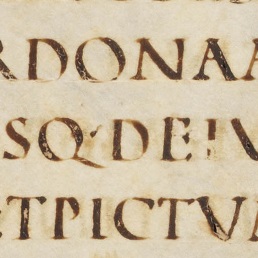 RDONAA
SQ·DEIV
ETPICTVR